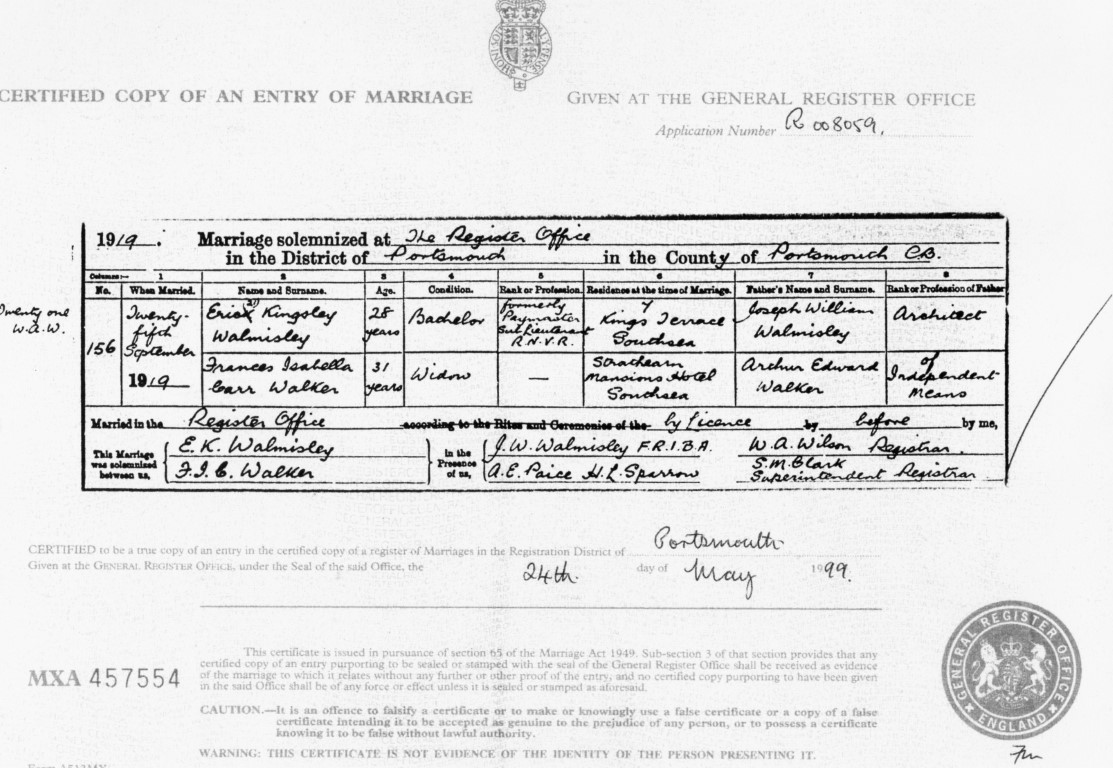 CERTIFIED COPY OF AN ENTRY OF MARRIAGE
GIVEN AT THE GENERAL REGISTER OFFICE
Application Number R 008059.
1919. Marriage solemnized at The Register Office
in the District of Portsmouth in the County of Portsmouth C.B.
Columns:— 1 2 3 4 5 6 7 8
No. When Married. Name and Surname. Age. Condition. Rank or Profession. Residence at the time of Marriage. Father's Name and Surname. Rank or Profession of Father
Twenty one
W.A.W.
156
Twenty-
fifth
September
1919
Erick Kingsley
Walmisley
28
years
Bachelor
formerly
Paymaster
Sub Lieutenant
R.N.V.R.
7
Kings Terrace
Southsea
Joseph William
Walmisley
Architect
Frances Isabella
Carr Walker
31
years
Widow
—
Strathearn
Mansions Hotel
Southsea
Arthur Edward
Walker
of
Independent
Means
Married in the Register Office according to the Rites and Ceremonies of the by Licence by before by me,
This Marriage
was solemnized
between us,
E. K. Walmisley
F. I. C. Walker
in the
Presence
of us,
J. W. Walmisley F.R.I.B.A.
A. E. Paice H. L. Sparrow
W. A. Wilson Registrar.
S. M. Clark
Superintendent Registrar
CERTIFIED to be a true copy of an entry in the certified copy of a register of Marriages in the Registration District of Portsmouth
Given at the GENERAL REGISTER OFFICE, under the Seal of the said Office, the 24th. day of May 1999.
MXA 457554
This certificate is issued in pursuance of section 65 of the Marriage Act 1949. Sub-section 3 of that section provides that any
certified copy of an entry purporting to be sealed or stamped with the seal of the General Register Office shall be received as evidence
of the marriage to which it relates without any further or other proof of the entry, and no certified copy purporting to have been given
in the said Office shall be of any force or effect unless it is sealed or stamped as aforesaid.
CAUTION.—It is an offence to falsify a certificate or to make or knowingly use a false certificate or a copy of a false
certificate intending it to be accepted as genuine to the prejudice of any person, or to possess a certificate
knowing it to be false without lawful authority.
WARNING: THIS CERTIFICATE IS NOT EVIDENCE OF THE IDENTITY OF THE PERSON PRESENTING IT.
GENERAL REGISTER OFFICE
ENGLAND